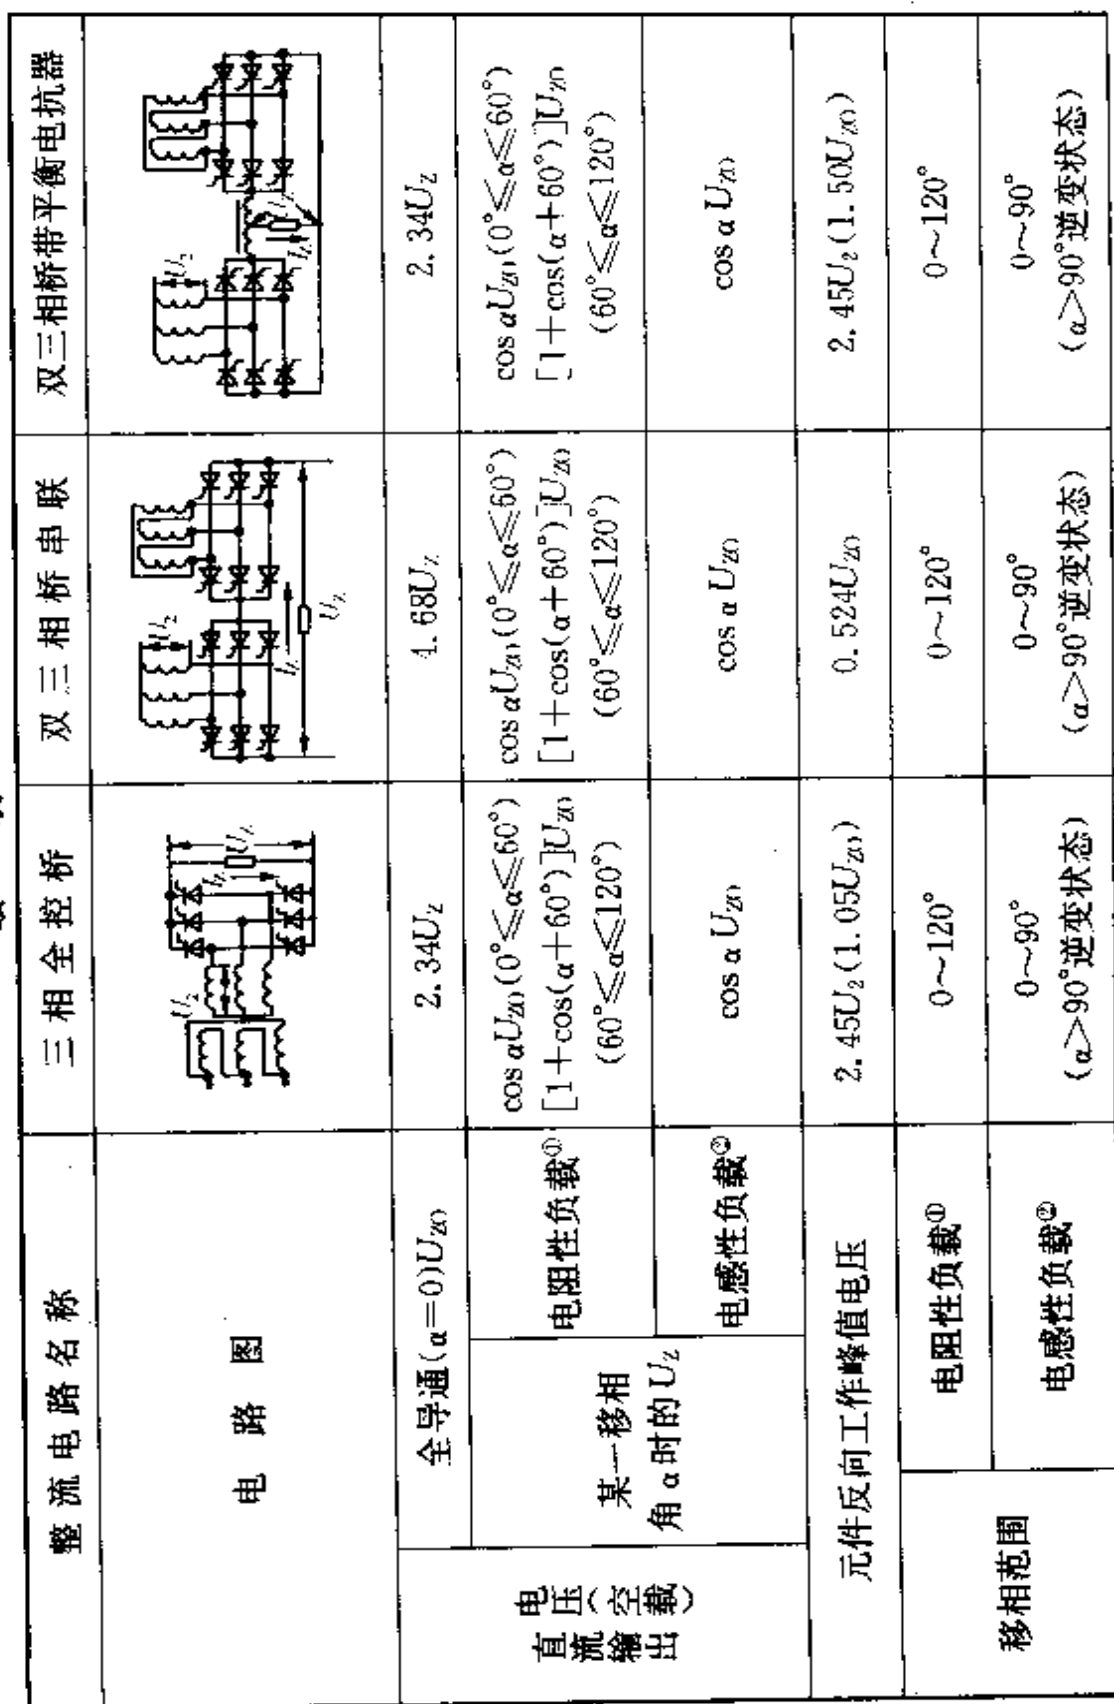 整流电路名称
三相全控桥
双三相桥串联
双三相桥带平衡电抗器
电路图
U₂
I_Z
U_Z
U₂
I_Z
U_Z
U₂
I_Z
U_Z
直流输出
电压(空载)
全导通(α=0)U_ZO
2.34U_Z
4.68U_Z
2.34U_Z
某一移相
角 α 时的 U_Z
电阻性负载①
cos αU_ZO(0°≤α≤60°)
[1+cos(α+60°)]U_ZO
(60°≤α≤120°)
cos αU_ZO(0°≤α≤60°)
[1+cos(α+60°)]U_ZO
(60°≤α≤120°)
cos αU_ZO(0°≤α≤60°)
[1+cos(α+60°)]U_ZO
(60°≤α≤120°)
电感性负载②
cos α U_ZO
cos α U_ZO
cos α U_ZO
元件反向工作峰值电压
2.45U₂(1.05U_ZO)
0.524U_ZO
2.45U₂(1.50U_ZO)
移相范围
电阻性负载①
0~120°
0~120°
0~120°
电感性负载②
0~90°
(α>90°逆变状态)
0~90°
(α>90°逆变状态)
0~90°
(α>90°逆变状态)